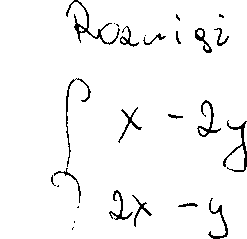 Rozwiąż
{ x - 2y
2x - y